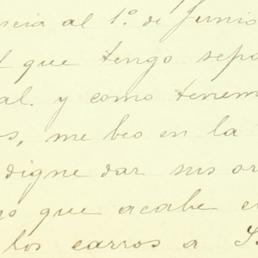 scia al 1º. de Junio
l que tengo sepa
al. y como tenem
os, me beo en la
digne dar sus or
no que acabe e
los carros a S